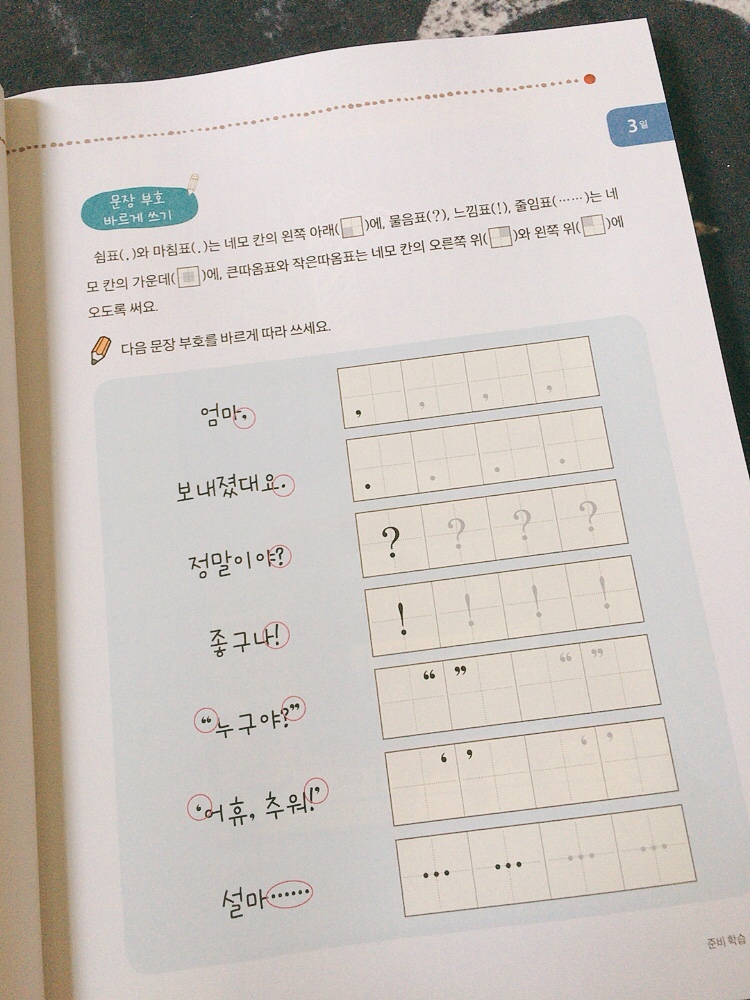 3일
문장 부호
바르게 쓰기
쉼표(,)와 마침표(.)는 네모 칸의 왼쪽 아래( )에, 물음표(?), 느낌표(!), 줄임표(……)는 네
모 칸의 가운데( )에, 큰따옴표와 작은따옴표는 네모 칸의 오른쪽 위( )와 왼쪽 위( )에
오도록 써요.
다음 문장 부호를 바르게 따라 쓰세요.
엄마, , , , ,
보내졌대요. . . . .
정말이야? ? ? ? ?
좋구나! ! ! ! !
“누구야?” “ ” “ ”
‘어휴, 추워!’ ‘ ’ ‘ ’
설마…… … … … …
준비 학습